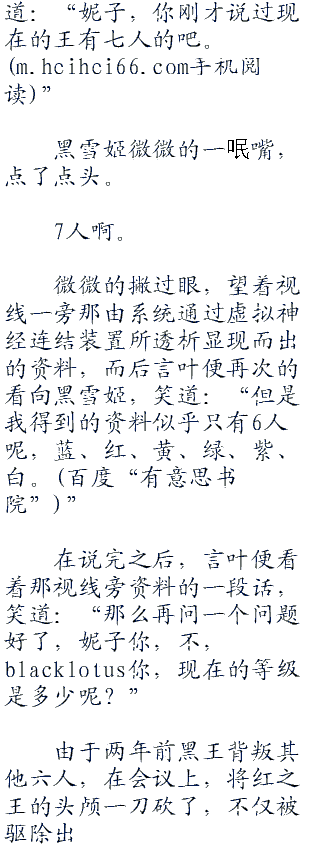 道：“妮子，你刚才说过现
在的王有七人的吧。
(m.hcihci66.com手机阅
读)”
黑雪姬微微的一呡嘴，
点了点头。
7人啊。
微微的撇过眼，望着视
线一旁那由系统通过虚拟神
经连结装置所透析显现而出
的资料，而后言叶便再次的
看向黑雪姬，笑道：“但是
我得到的资料似乎只有6人
呢，蓝、红、黄、绿、紫、
白。(百度“有意思书
院”)”
在说完之后，言叶便看
着那视线旁资料的一段话，
笑道：“那么再问一个问题
好了，妮子你，不，
blacklotus你，现在的等级
是多少呢？”
由于两年前黑王背叛其
他六人，在会议上，将红之
王的头颅一刀砍了，不仅被
驱除出